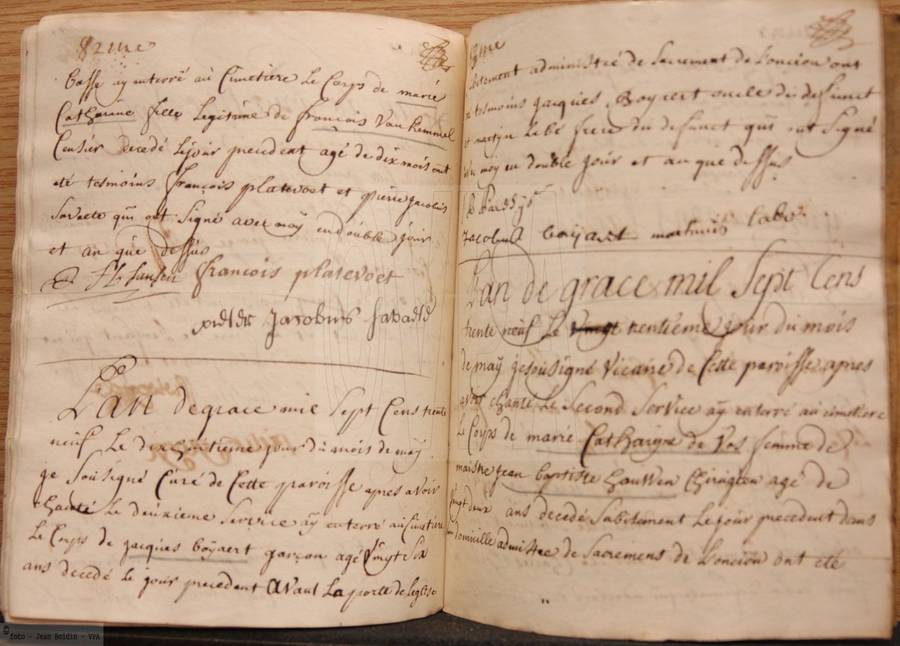 82me
basse ay enterré au Cimetiere Le Corps de marie
Catharine fille Legitime de francois Van hemmel
Censier decedé lejour precedent agé de dix mois ont
eté tesmoins françois platevoet et pierre jacobus
Savaete qui ont Signé avec moy endouble jour
et an que dessus
francois platevoet
jacobus savaete
L'an degrace mil Sept Cens trente
neuf Le jour du mois de may
je Sousigné Curé de Cette paroisse apres avoir
chanté Le deuxieme Service ay enterré au Cimetiere
Le Corps de jacques boyaert garçon agé Vingt Six
ans decedé le jour precedent avant La porte de leglise
administré de Sacrement de Lonction ont
tesmoins jacques Boyaert oncle du defunct
et martin Lebé frere du defunct qui ont Signé
moy en double jour et an que dessus
jacobus boyaert martinus
Lan de grace mil Sept Cens
trente neuf Le trentieme jour du mois
de may je Sousigné Vicaire de Cette paroisse apres
avoir chanté Le Second Service ay enterré au cimetiere
Le Corps de marie Catharine de Vos femme de
maistre jean baptiste hauwen Chirugien agé de
vingt deux ans decedé Subitement Lejour precedent dans
administree de Sacremens de Lonction ont eté
© foto - Jean Boidin - VPA